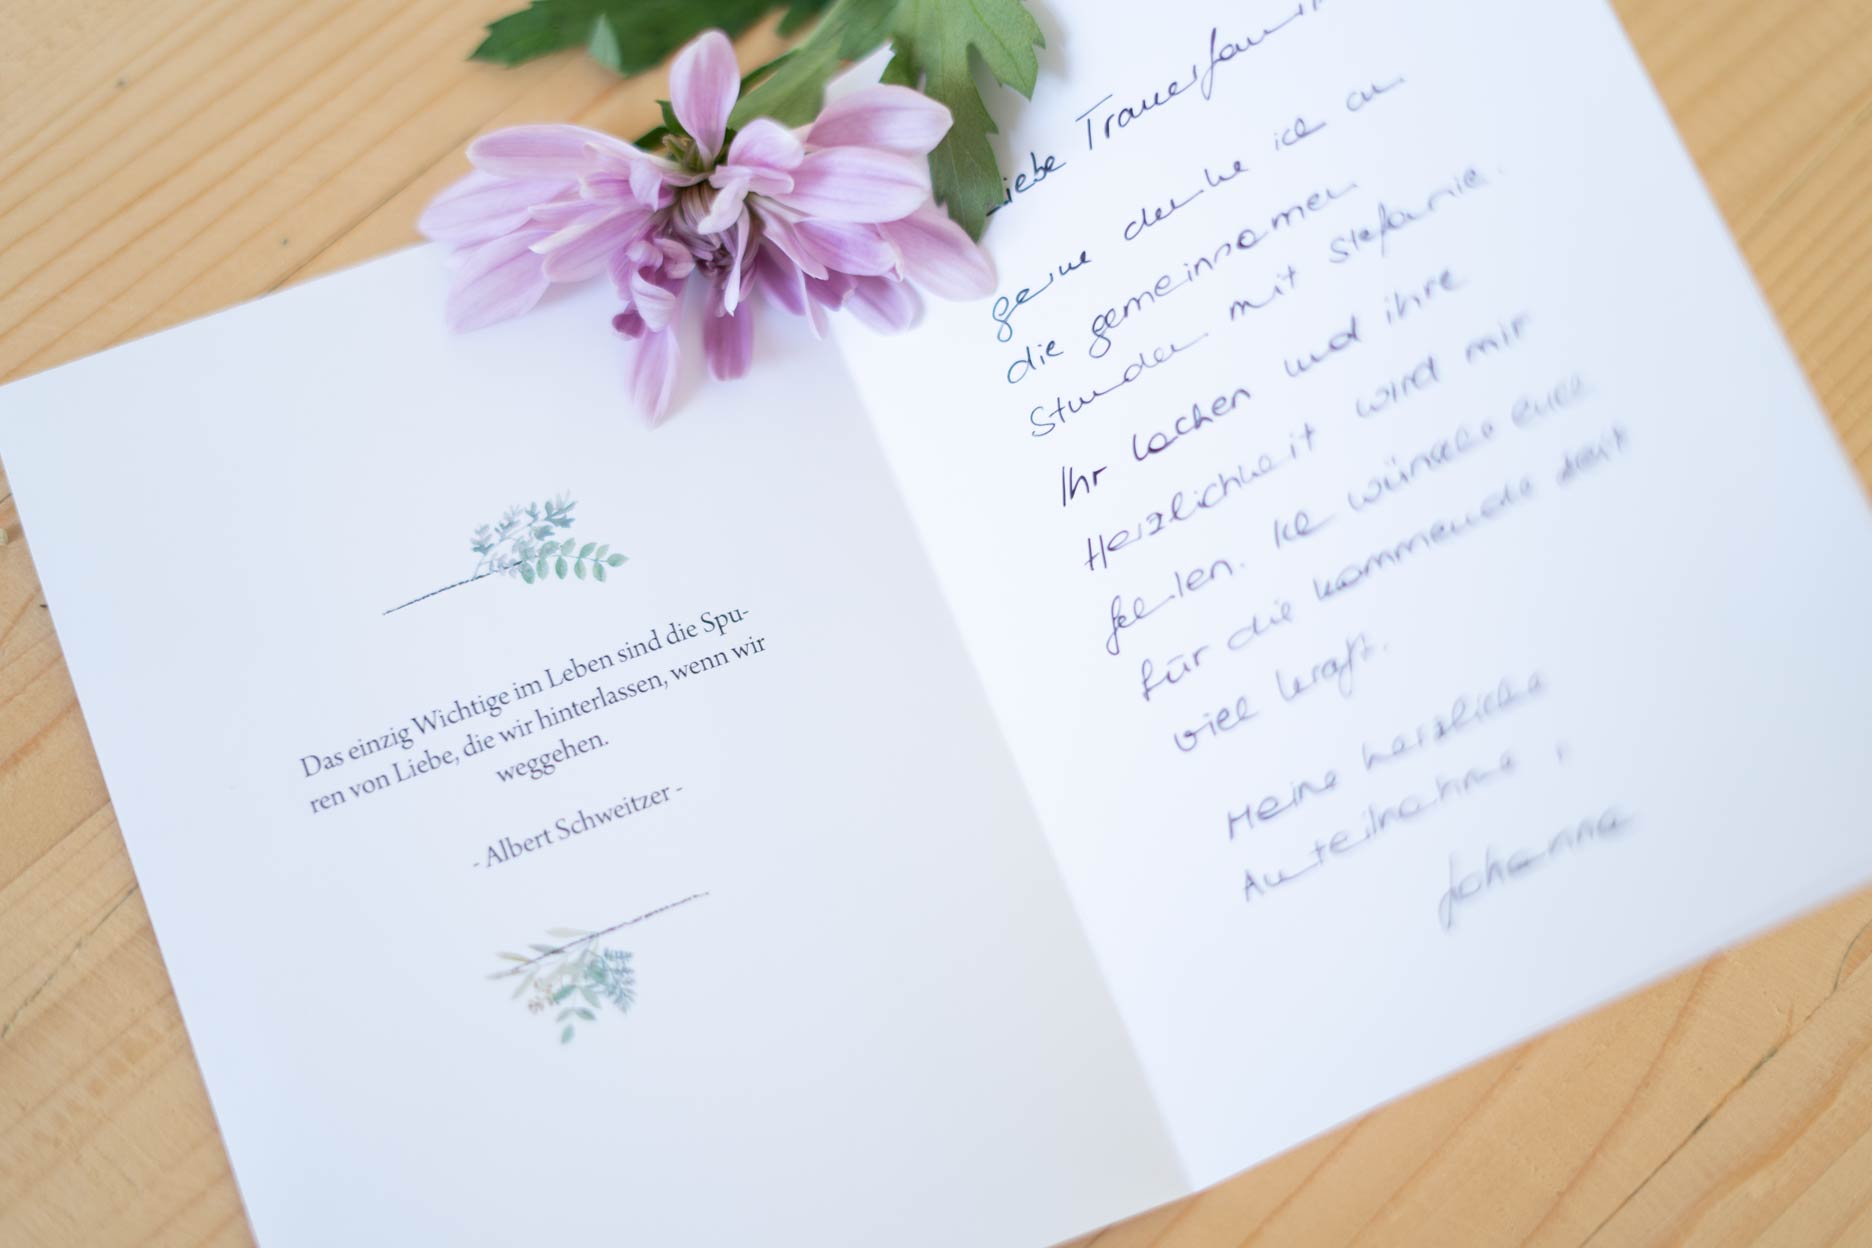 Das einzig Wichtige im Leben sind die Spu-
ren von Liebe, die wir hinterlassen, wenn wir
weggehen.
- Albert Schweitzer -
Liebe
gerne denke ich an
die gemeinsamen
Stunden mit Stefanie.
Ihr Lachen und ihre
Herzlichkeit wird mir
fehlen. Ich wünsche euch
für die kommende Zeit
viel Kraft.
Meine herzliche
Anteilnahme,
Johanna